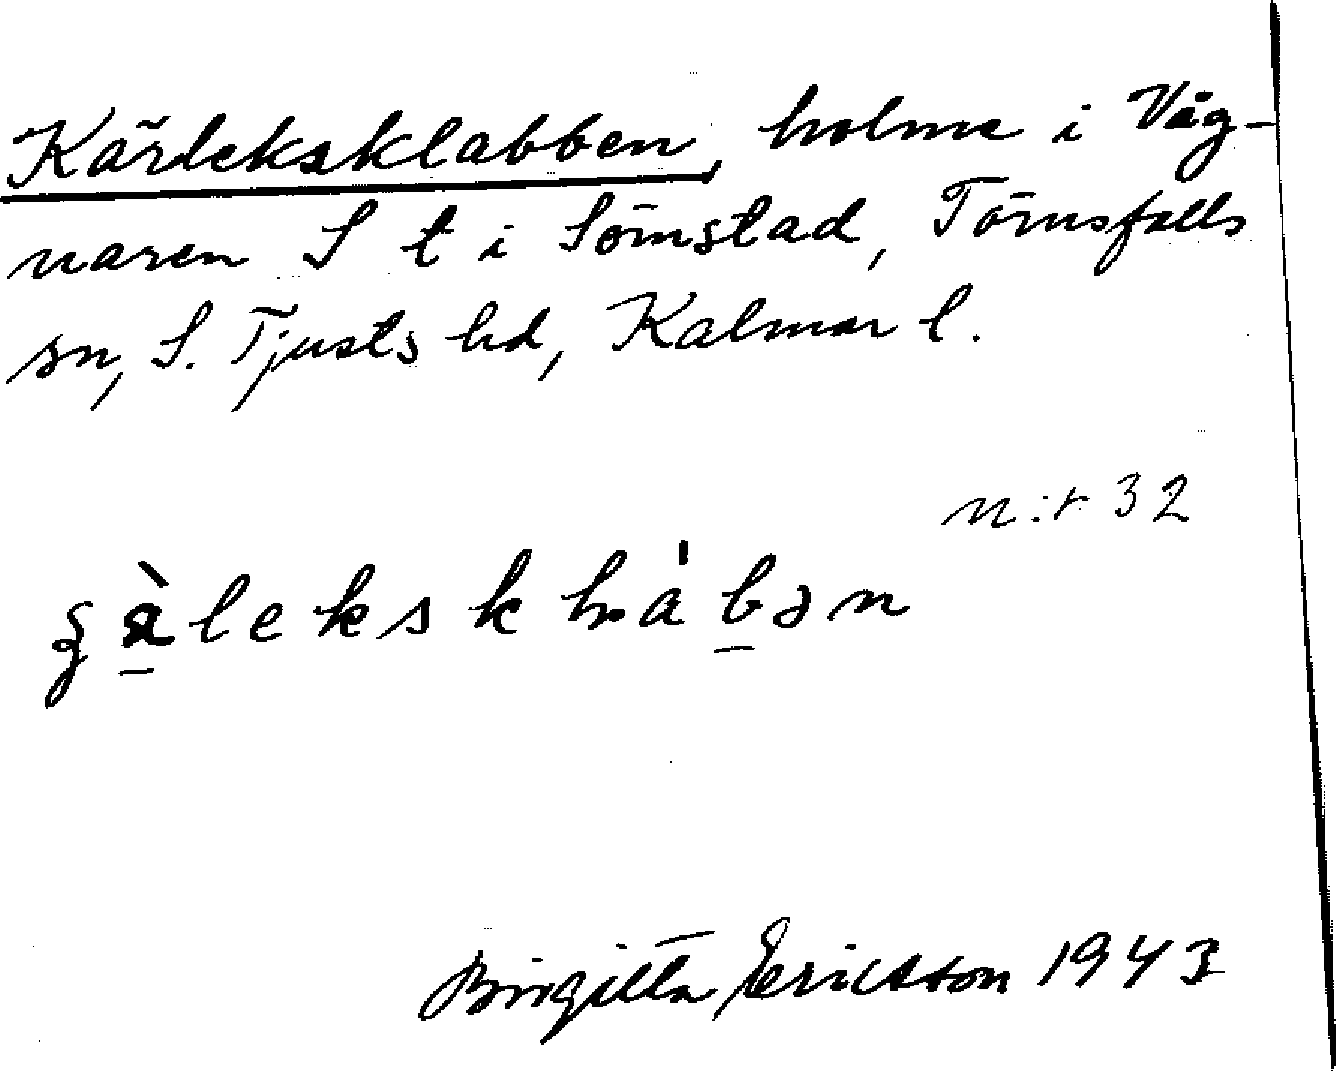 Kärleksklabben, holme i Väg-
naren S t i Sörnstad, Törnsfalls
sn, S. Tjusts hd, Kalmar l.
n:r 32
Birgitta Ericsson 1943